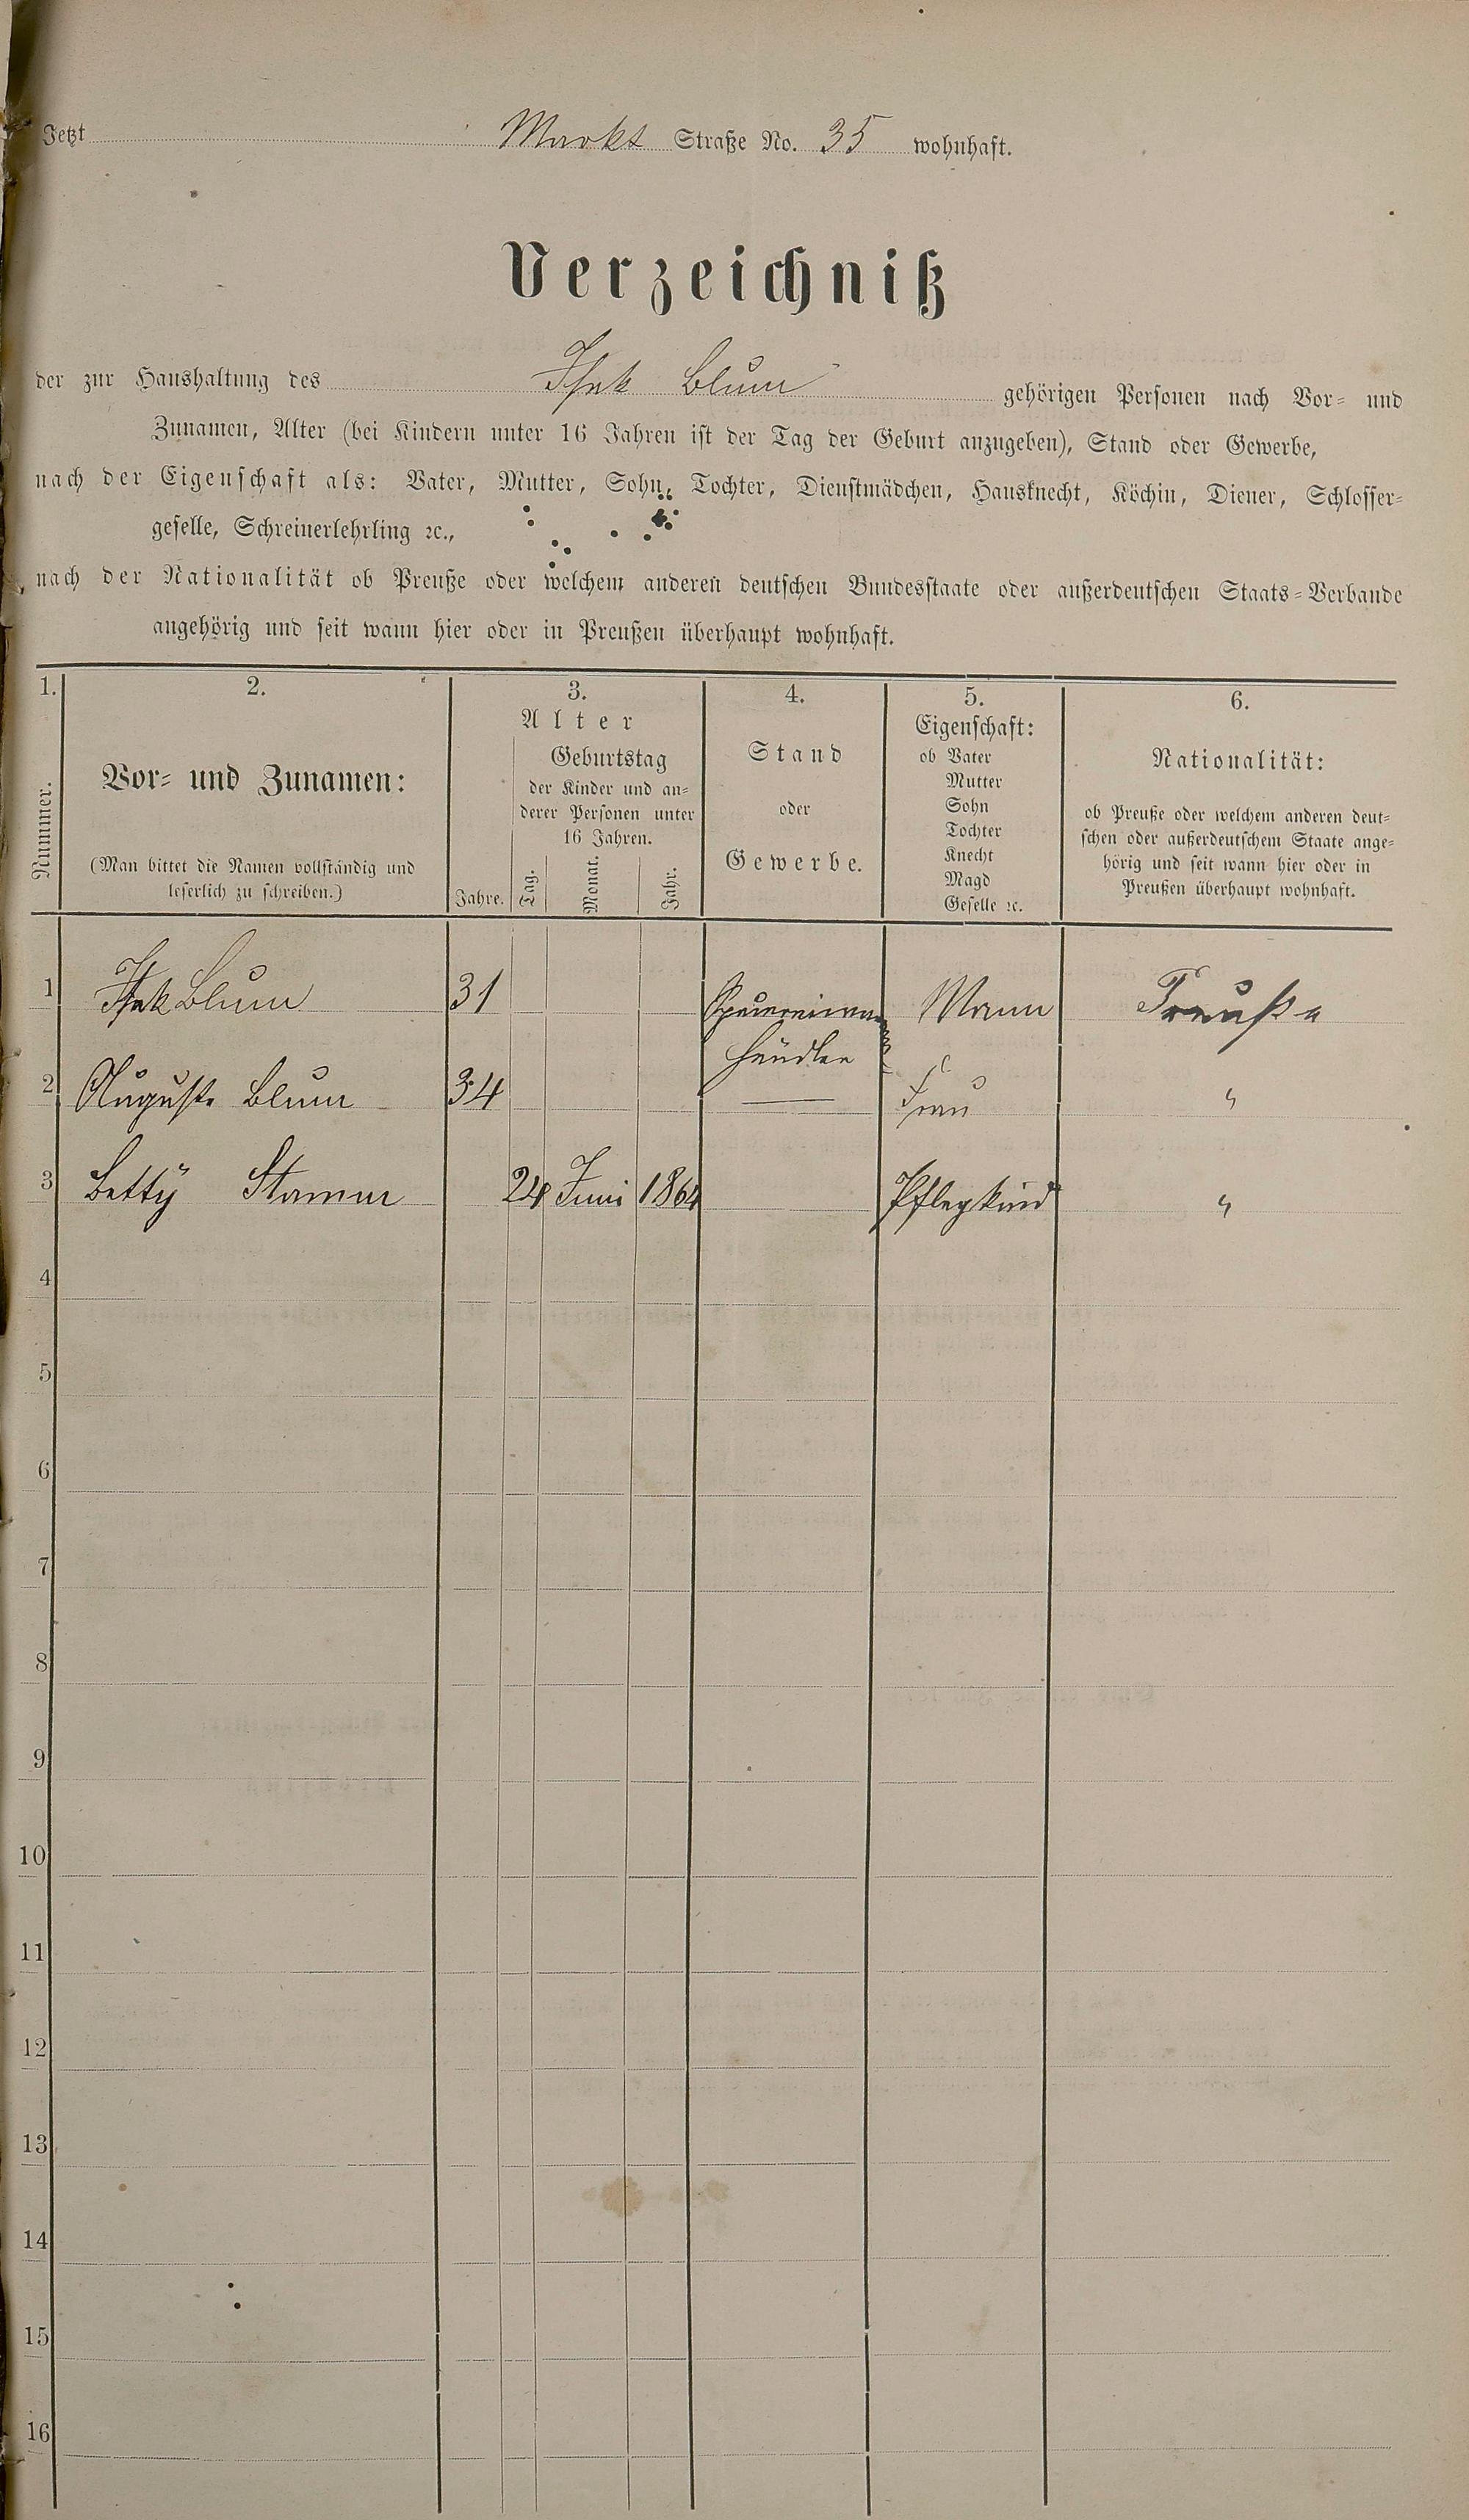 Jetzt Markt Straße No. 35 wohnhaft.
Verzeichniß
der zur Haushaltung des Blum gehörigen Personen nach Vor- und
Zunamen, Alter (bei Kindern unter 16 Jahren ist der Tag der Geburt anzugeben), Stand oder Gewerbe,
nach der Eigenschaft als: Vater, Mutter, Sohn, Tochter, Dienstmädchen, Hausknecht, Köchin, Diener, Schlosser-
geselle, Schreinerlehrling ꝛc.,
nach der Nationalität ob Preuße oder welchem anderen deutschen Bundesstaate oder außerdeutschen Staats-Verbande
angehörig und seit wann hier oder in Preußen überhaupt wohnhaft.
1. 2. 3. 4. 5. 6.
Nummer.
Vor- und Zunamen:
(Man bittet die Namen vollständig und
leserlich zu schreiben.)
Alter
Geburtstag
der Kinder und an-
derer Personen unter
16 Jahren.
Jahre. Tag. Monat. Jahr.
Stand
oder
Gewerbe.
Eigenschaft:
ob Vater
Mutter
Sohn
Tochter
Knecht
Magd
Geselle ꝛc.
Nationalität:
ob Preuße oder welchem anderen deut-
schen oder außerdeutschem Staate ange-
hörig und seit wann hier oder in
Preußen überhaupt wohnhaft.
1 Blum 31 Mann Preuße
händler
2 Auguste Blum 34 — Frau "
3 Betty Stamm 24 Juni 1864 Pflegkind "
4
5
6
7
8
9
10
11
12
13
14
15
16